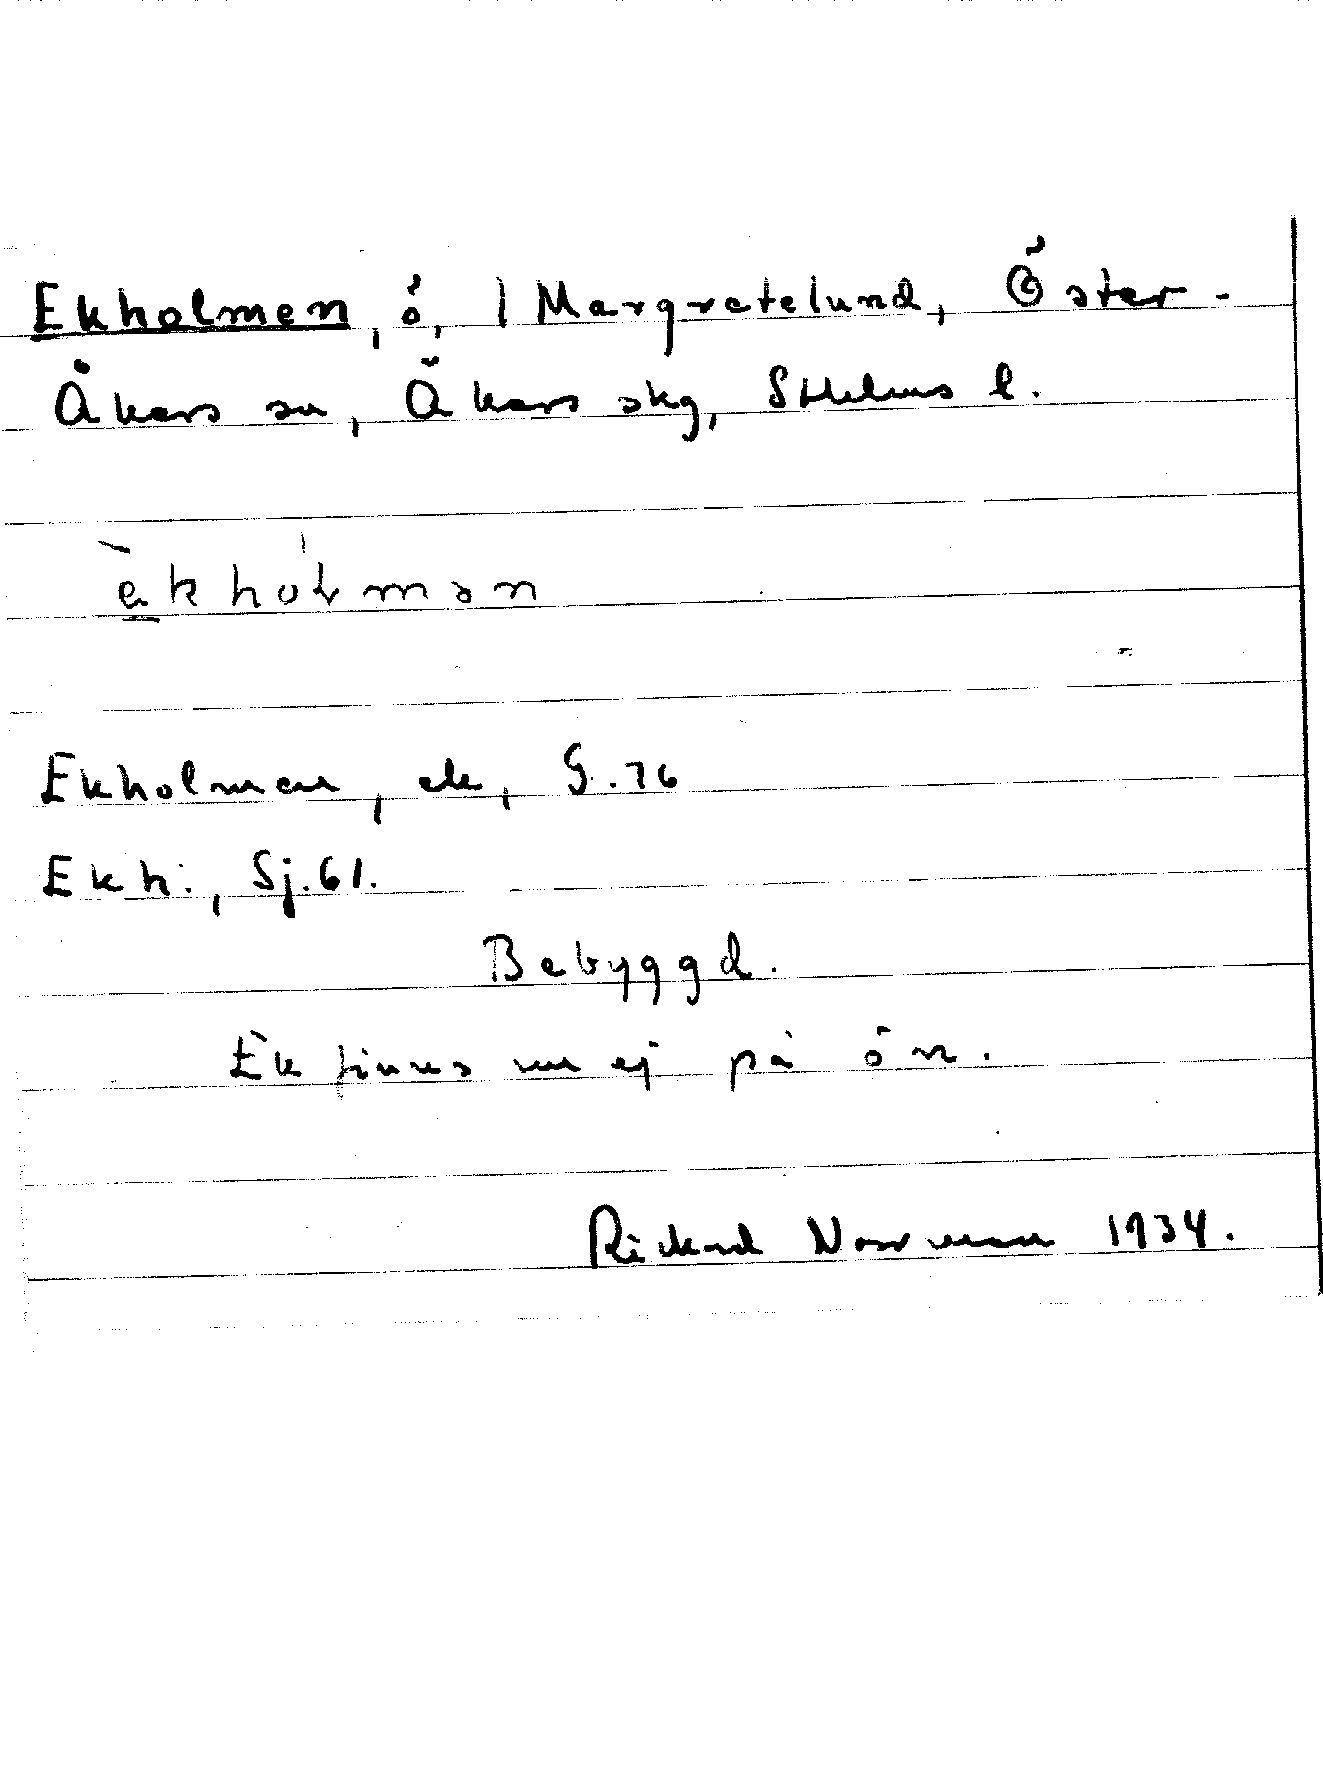 Ekholmen, ö, 1 Margretelund, Öster-
Åkers sn, Åkers skg, Sthlms l.
èkhólmən
Ekholmen, ek, G.76
Ekh:, Sj.61.
Bebyggd.
Ek finns nu ej på ön.
Rickard Norrman 1934.